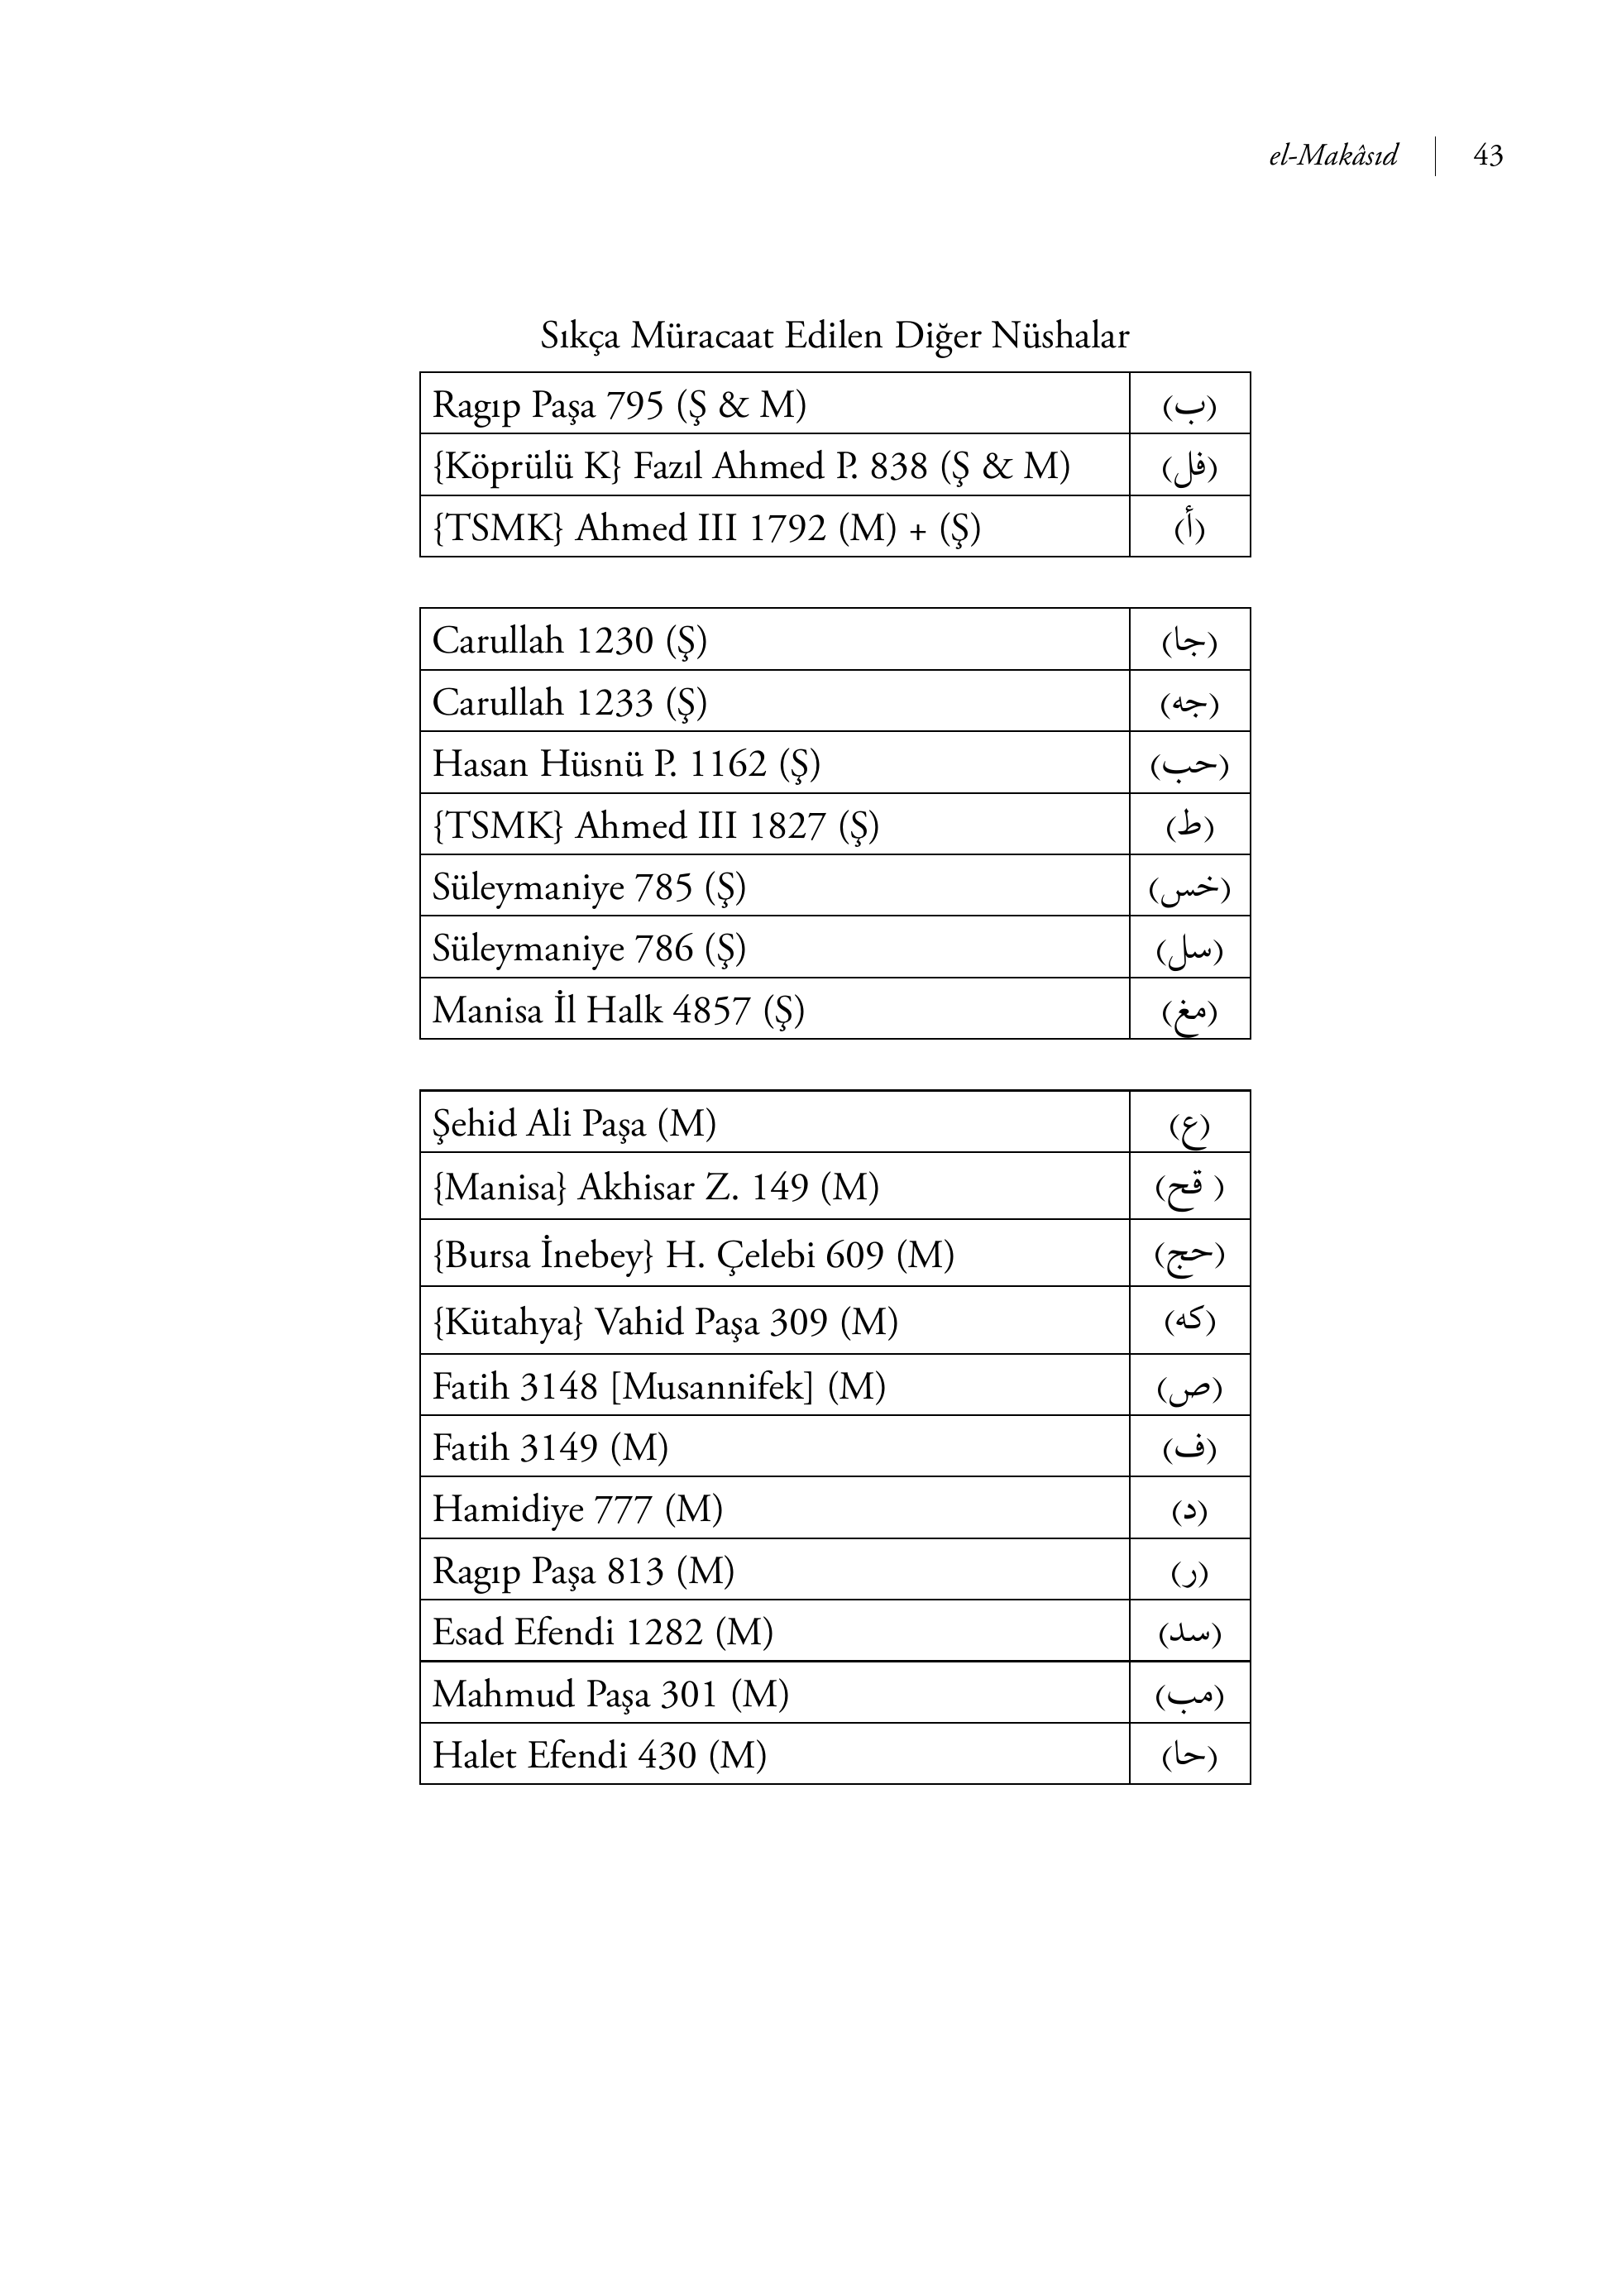 el-Makâsıd | 43
Sıkça Müracaat Edilen Diğer Nüshalar
Ragıp Paşa 795 (Ş & M) (ب)
{Köprülü K} Fazıl Ahmed P. 838 (Ş & M) (فل)
{TSMK} Ahmed III 1792 (M) + (Ş) (أ)
Carullah 1230 (Ş) (جا)
Carullah 1233 (Ş) (جه)
Hasan Hüsnü P. 1162 (Ş) (حب)
{TSMK} Ahmed III 1827 (Ş) (ط)
Süleymaniye 785 (Ş) (خس)
Süleymaniye 786 (Ş) (سل)
Manisa İl Halk 4857 (Ş) (مغ)
Şehid Ali Paşa (M) (ع)
{Manisa} Akhisar Z. 149 (M) (قح )
{Bursa İnebey} H. Çelebi 609 (M) (حج)
{Kütahya} Vahid Paşa 309 (M) (كه)
Fatih 3148 [Musannifek] (M) (ص)
Fatih 3149 (M) (ف)
Hamidiye 777 (M) (د)
Ragıp Paşa 813 (M) (ر)
Esad Efendi 1282 (M) (سد)
Mahmud Paşa 301 (M) (مب)
Halet Efendi 430 (M) (حا)